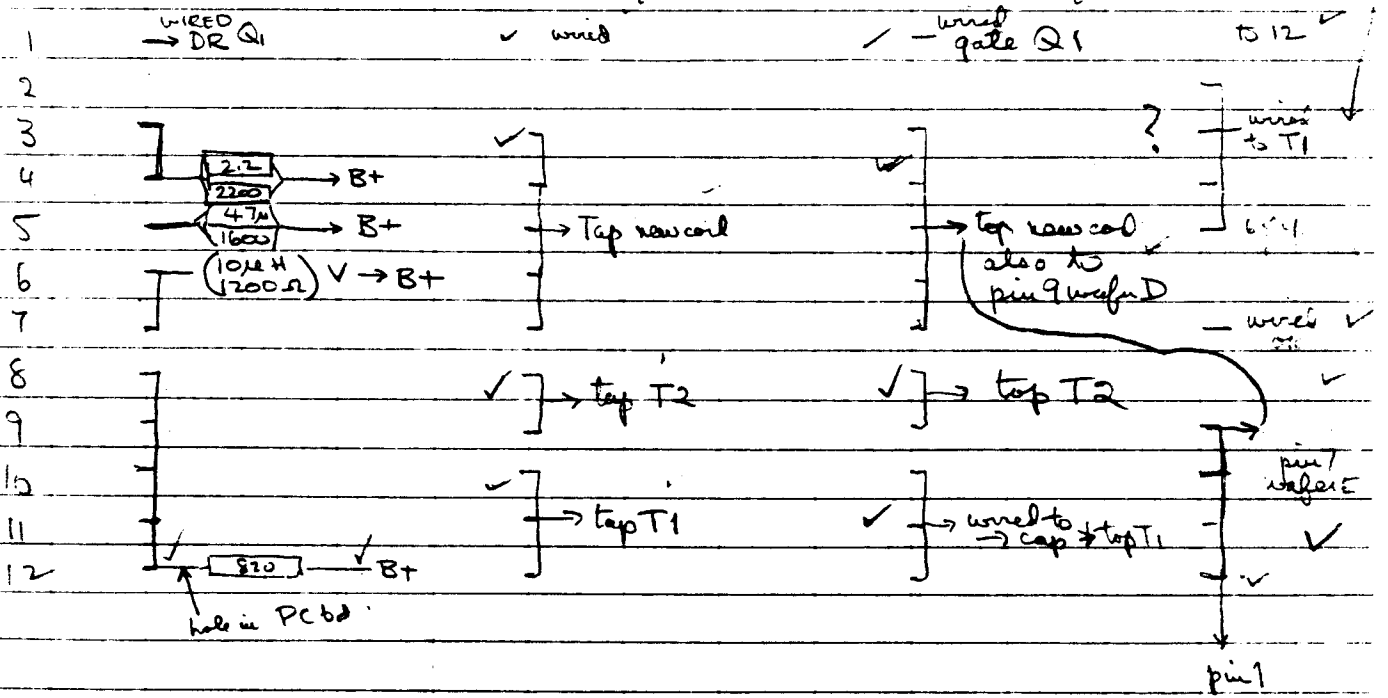 WIRED
1 → DR Q1 ✓ wired ✓ wired gate Q1 to 12 ✓
2
3 ✓ ? wired to T1
4 2.2 2200 → B+ ✓
5 47μ 1600 → B+ → Tap new coil → top new coil
6 (10μH 1200Ω) V → B+ also to ✓
pin 9 wafer D
7 wired ✓
8 ✓ → tap T2 ✓ → top T2 ✓
9
10 ✓ pin 7
wafer E
11 → tap T1 ✓ → wired to ✓
→ cap → top T1
12 ✓ 820 ✓ B+ ✓
hole in PC bd
pin 1